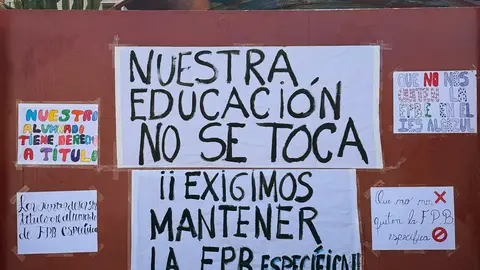 NUESTRO
ALUMNADO
TIENE DERECHO
A TITULO
de FPB específica
NUESTRA
EDUCACIÓN
NO SE TOCA
¡¡EXIGIMOS
MANTENER
LA FPB ESPECÍFICA!!
QUE NO NOS
QUITEN LA
EN EL
IES ALGAZUL
Que no nos
quiten la FPB
específica